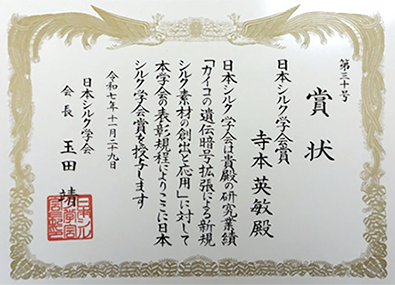 第三十号
賞状
日本シルク学会賞
寺本英敏殿
日本シルク学会は貴殿の研究業績
「カイコの遺伝暗号拡張による新規
シルク素材の創出と応用」に対して
本学会の表彰規程によりここに日本
シルク学会賞を授与します
令和七年十一月二十九日
日本シルク学会
会長 玉田靖